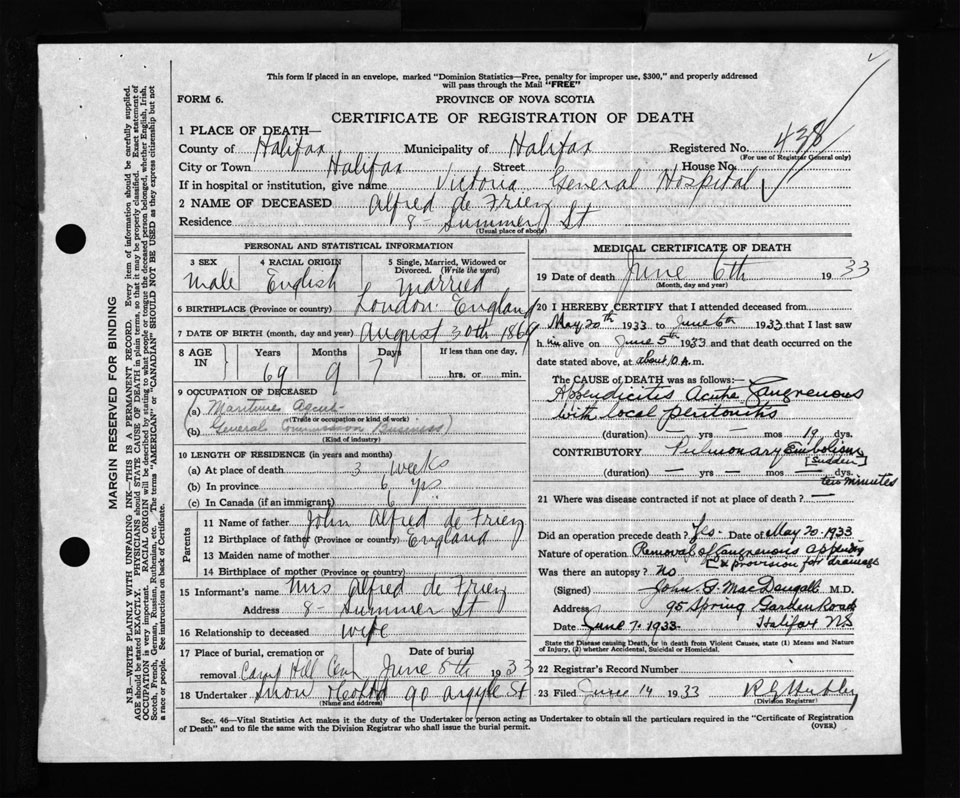 This form if placed in an envelope, marked "Dominion Statistics—Free, penalty for improper use, $300," and properly addressed
will pass through the Mail "FREE"
FORM 6.
PROVINCE OF NOVA SCOTIA
CERTIFICATE OF REGISTRATION OF DEATH
1 PLACE OF DEATH—
County of Halifax Municipality of Halifax Registered No. 438
(For use of Registrar General only)
City or Town Halifax Street House No.
If in hospital or institution, give name Victoria General Hospital
2 NAME OF DECEASED Alfred de Friez
Residence 8 Summer St
(Usual place of abode)
PERSONAL AND STATISTICAL INFORMATION
3 SEX 4 RACIAL ORIGIN 5 Single, Married, Widowed or Divorced. (Write the word)
Male English Married
6 BIRTHPLACE (Province or country) London England
7 DATE OF BIRTH (month, day and year) August 30th 186
8 AGE IN Years Months Days If less than one day,
69 9 7 hrs. or min.
9 OCCUPATION OF DECEASED
(a) Maritime Agent
(Trade or occupation or kind of work)
(b) General Commission Business
(Kind of industry)
10 LENGTH OF RESIDENCE (in years and months)
(a) At place of death 3 weeks
(b) In province 6 yrs
(c) In Canada (if an immigrant) 6 "
Parents
11 Name of father John Alfred de Friez
12 Birthplace of father (Province or country) England
13 Maiden name of mother
14 Birthplace of mother (Province or country)
15 Informant's name Mrs Alfred de Friez
Address 8 Summer St
16 Relationship to deceased wife
17 Place of burial, cremation or removal Date of burial
Camp Hill Cem June 8th 1933
18 Undertaker Snow 90 Argyle St
(Name and address)
MEDICAL CERTIFICATE OF DEATH
19 Date of death June 6th 1933
(Month, day and year)
20 I HEREBY CERTIFY that I attended deceased from
May 20th 1933 to June 6th 1933 that I last saw
him alive on June 5th 1933 and that death occurred on the
date stated above, at about 10 A.m.
The CAUSE OF DEATH was as follows:—
Appendicitis Acute Gangrenous
with local peritonitis
(duration) — yrs — mos 19 dys.
CONTRIBUTORY Pulmonary Embolism
[sudden]
(duration) — yrs. — mos — dys.
ten minutes
21 Where was disease contracted if not at place of death? —
Did an operation precede death? Yes- Date of May 20-1933
Nature of operation Removal of Gangrenous appendix
& provision for drainage
Was there an autopsy? no
(Signed) John G. MacDougall M.D.
Address 95 Spring Garden Road
Date June 7. 1933. Halifax N.S.
State the Disease causing Death, or in death from Violent Causes, state (1) Means and Nature
of Injury, (2) whether Accidental, Suicidal or Homicidal.
22 Registrar's Record Number
23 Filed June 14 1933
(Division Registrar)
Sec. 46—Vital Statistics Act makes it the duty of the Undertaker or person acting as Undertaker to obtain all the particulars required in the "Certificate of Registration
of Death" and to file the same with the Division Registrar who shall issue the burial permit.
(OVER)
MARGIN RESERVED FOR BINDING
N.B.—WRITE PLAINLY WITH UNFADING INK—THIS IS A PERMANENT RECORD. Every item of information should be carefully supplied.
AGE should be stated EXACTLY. PHYSICIANS should STATE CAUSE OF DEATH in plain terms, so that it may be properly classified. Exact statement of
OCCUPATION is very important. RACIAL ORIGIN will be described by stating to what people or tongue the deceased person belonged, whether English, Irish,
Scotch, French, German, Russian, Ruthenian, etc. The terms "AMERICAN" or "CANADIAN" SHOULD NOT BE USED as they express citizenship but not
a race or people. See instructions on back of Certificate.